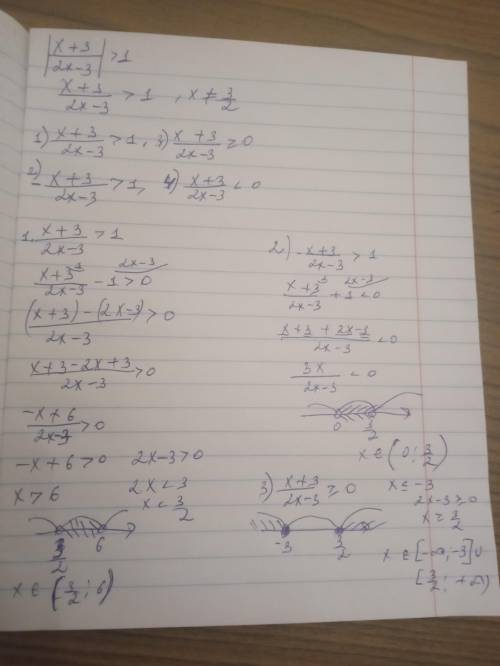 |x+3/2x-3| >1
x+3/2x-3 > 1 , x ≠ 3/2
1) x+3/2x-3 > 1, 3) x+3/2x-3 ≥ 0
2) - x+3/2x-3 > 1, 4) x+3/2x-3 < 0
1. x+3/2x-3 > 1
x+3/2x-3 - 1 > 0
(x+3)-(2x-3)/2x-3 > 0
x+3-2x+3/2x-3 > 0
-x+6/2x-3 > 0
-x+6 > 0 2x-3 > 0
x > 6 2x < 3
x < 3/2
3/2 6
x ∈ (3/2; 6)
2) - x+3/2x-3 > 1
x+3/2x-3 + 1 < 0
x+3+2x-3/2x-3 < 0
3x/2x-3 < 0
0 3/2
x ∈ (0; 3/2)
3) x+3/2x-3 ≥ 0
x ≤ -3
2x-3 ≥ 0
x ≥ 3/2
-3 3/2
x ∈ [-∞; -3] ∪
[3/2; +∞)